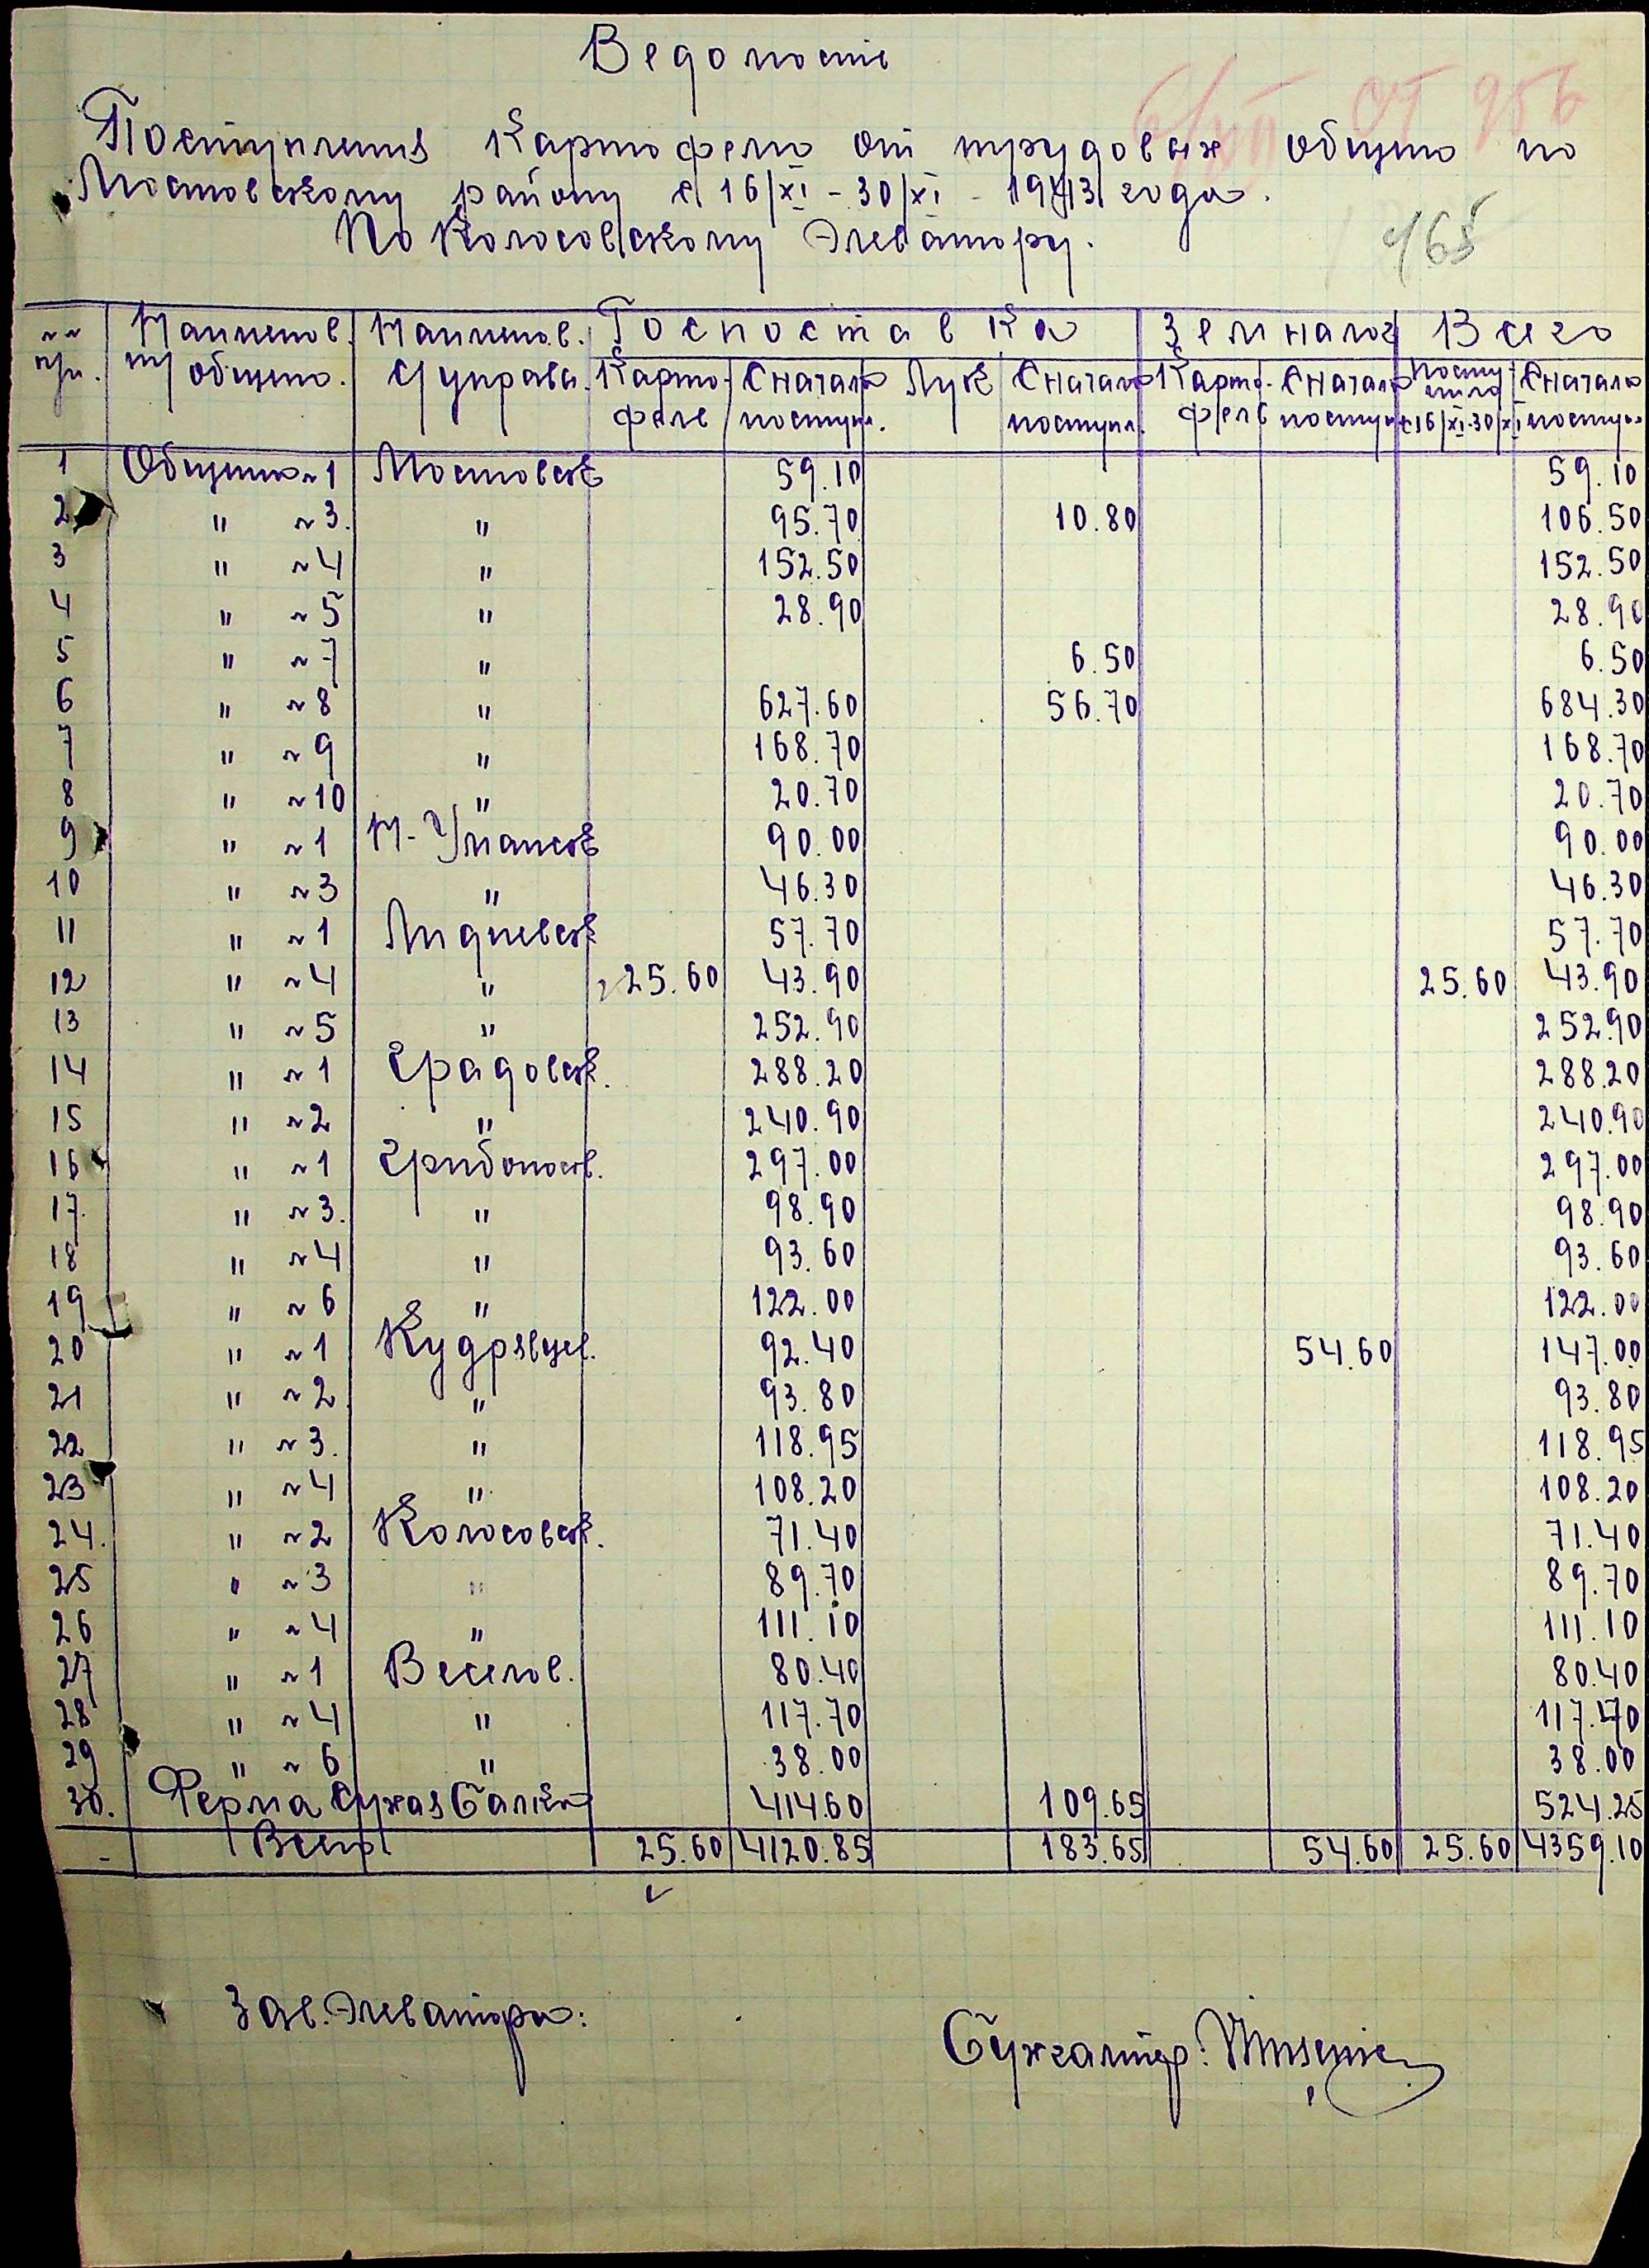 Ведомость
6/XII СТ 956
Поступления Картофеля от трудовых общин по
Мостовскому району с 16/XI - 30/XI - 1943 года.
По Колосовскому Элеватору.
465
№№ п/п. Наименов. тр общин. Наименов. С управы. Госпоставка Земналог Всего
Карто-фель С начала поступл. Лук С начала поступл. Карто-фель С начала поступл. Посту-пило с 16/XI-30/XI С начала поступл.
1 Община №1 Мостовск 59.10 59.10
2 " №3. " 95.70 10.80 106.50
3 " №4 " 152.50 152.50
4 " №5 " 28.90 28.90
5 " №7 " 6.50 6.50
6 " №8 " 627.60 56.70 684.30
7 " №9 " 168.70 168.70
8 " №10 " 20.70 20.70
9 " №1 Н-Уманск 90.00 90.00
10 " №3 " 46.30 46.30
11 " №1 Лидиевск 57.70 57.70
12 " №4 " 25.60 43.90 25.60 43.90
13 " №5 " 252.90 252.90
14 " №1 Градовск. 288.20 288.20
15 " №2 " 240.90 240.90
16 " №1 Грибоносов. 297.00 297.00
17. " №3. " 98.90 98.90
18 " №4 " 93.60 93.60
19 " №6 " 122.00 122.00
20 " №1 Кудрявцев. 92.40 54.60 147.00
21 " №2 " 93.80 93.80
22 " №3. " 118.95 118.95
23 " №4 " 108.20 108.20
24. " №2 Колосовск. 71.40 71.40
25 " №3 " 89.70 89.70
26 " №4 " 111.10 111.10
27 " №1 Веселов. 80.40 80.40
28 " №4 " 117.70 117.70
29 " №6 " 38.00 38.00
30. Ферма Сухая Балка 414.60 109.65 524.25
- Всего 25.60 4120.85 183.65 54.60 25.60 4359.10
Зав. Элеватора:
Бухгалтер: